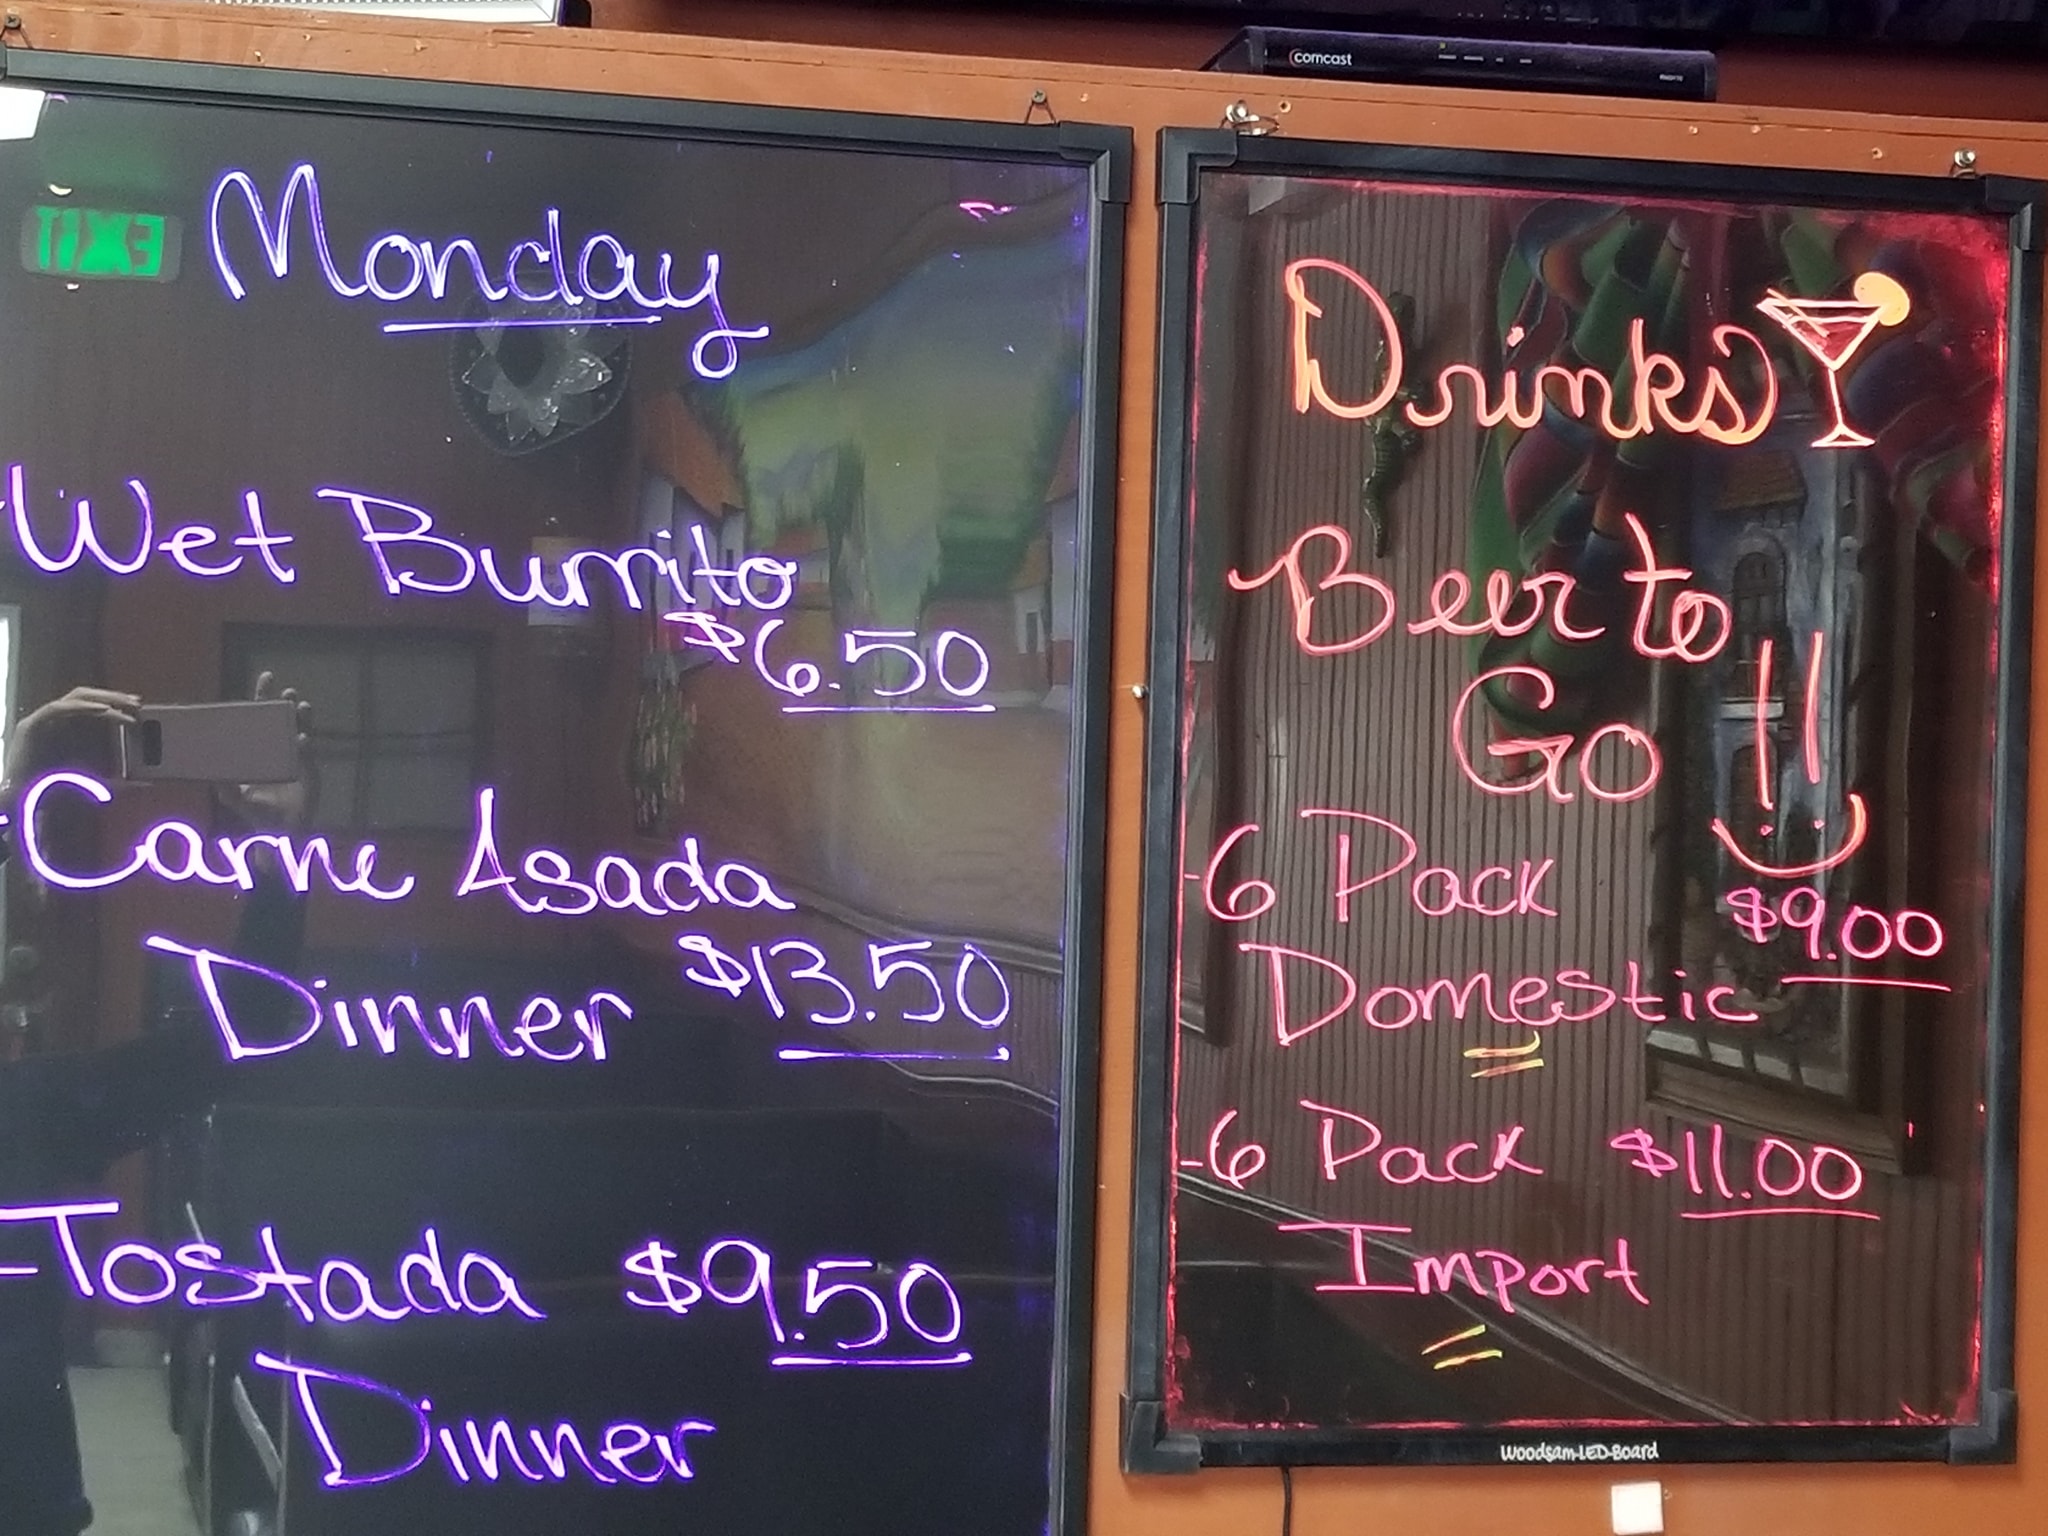 comcast
EXIT
Monday
-Wet Burrito
$6.50
-Carne Asada
Dinner $13.50
-Tostada $9.50
Dinner
Drinks
Beer to
Go !!
-6 Pack $9.00
Domestic
-6 Pack $11.00
Import
Woodsam-LED-Board